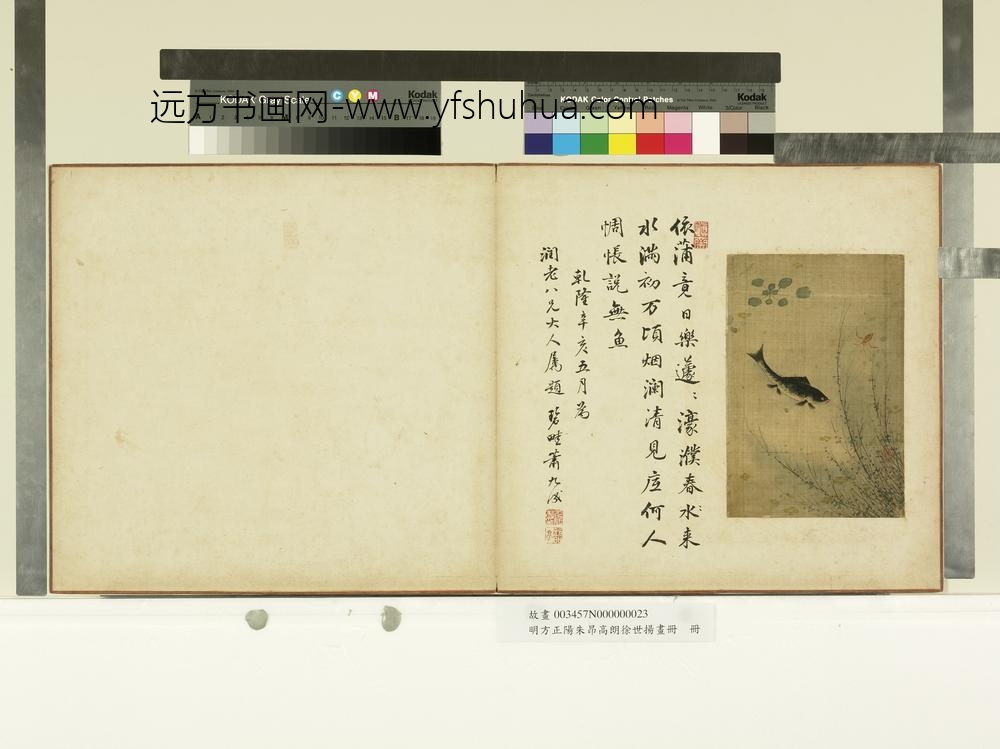 KODAK Gray Scale
C Y M
Kodak
KODAK Color Control Patches
Kodak
Magenta White 3/Color Black
远方书画网-www.yfshuhua.com
依蒲竟日樂蘧〻濠濮春水来
水满初万頃烟澜清見底何人
惆悵說無魚
乾隆辛亥五月為
润老八兄大人属題 碧畦蕭九成
故畫 003457N000000023
明方正陽朱昂高朗徐世揚畫冊 冊